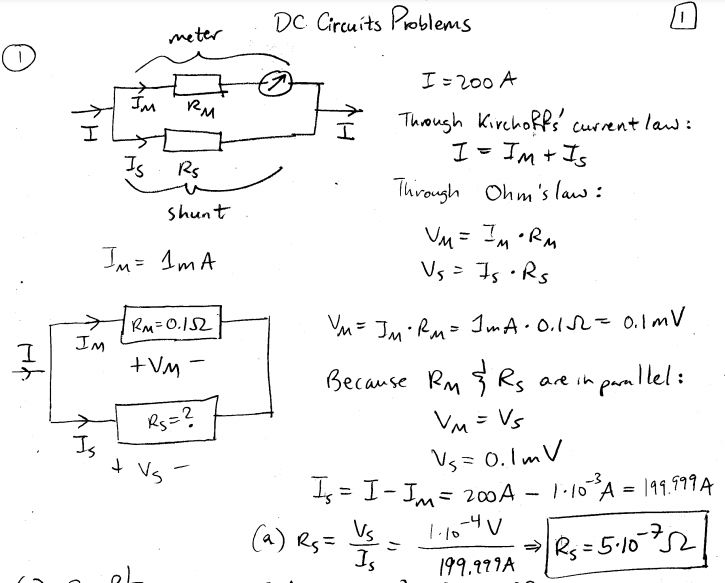 DC Circuits Problems
1
1
meter
I_M R_M
I I
I_S R_S
shunt
I = 200 A
Through Kirchoffs' current law:
I = I_M + I_S
Through Ohm's law:
V_M = I_M · R_M
V_S = I_S · R_S
I_M = 1mA
R_M = 0.1Ω
I I_M
+ V_M −
R_S = ?
I_S
+ V_S −
V_M = I_M · R_M = 1mA · 0.1Ω = 0.1mV
Because R_M & R_S are in parallel:
V_M = V_S
V_S = 0.1mV
I_S = I − I_M = 200A − 1·10⁻³A = 199.999A
(a) R_S = V_S / I_S = 1·10⁻⁴V / 199.999A ⇒ R_S = 5·10⁻⁷Ω